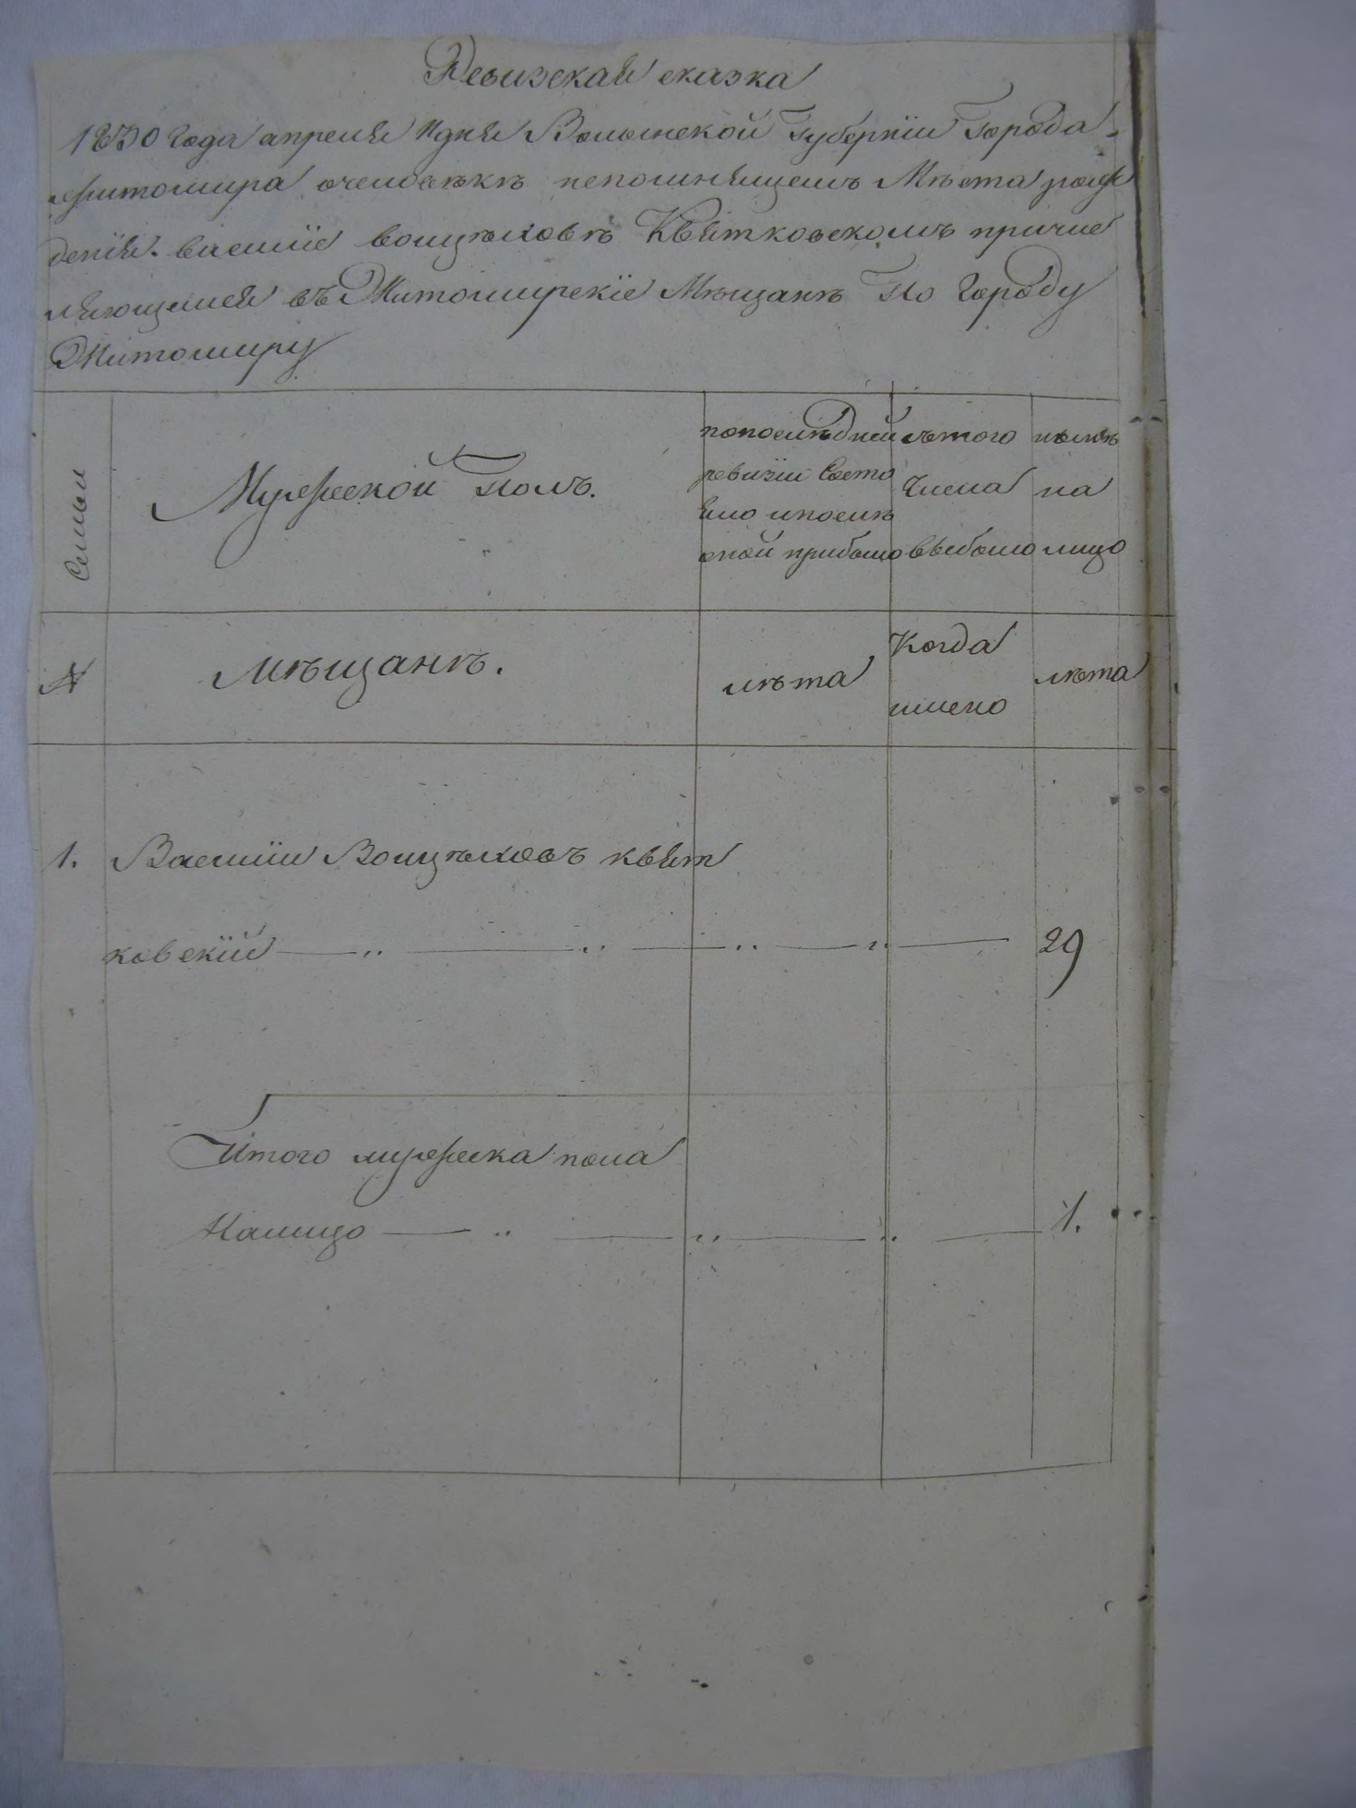 Ревизская сказка
1830 года апреля дня Волынской Губернїи Города
житомира очеловѣкѣ непомнящемъ Мѣста рож
денїя. василїе воицѣховѣ Квятковскомъ причис
ляющемся въ Житомирскїе Мѣщанѣ По Городу
Житомиру
Семьи
Мужеской Полъ.
попослѣдней
ревизїи Состо
яло ипослѣ
оной прибыло
изтого
Числа
выбыло
нынѣ
на
лицо
№
мѣщанѣ.
лѣта
Когда
имено
лѣта
1. Василїи Воицѣховъ квят
ковскїй 29
Итого мужеска пола
Налицо 1.